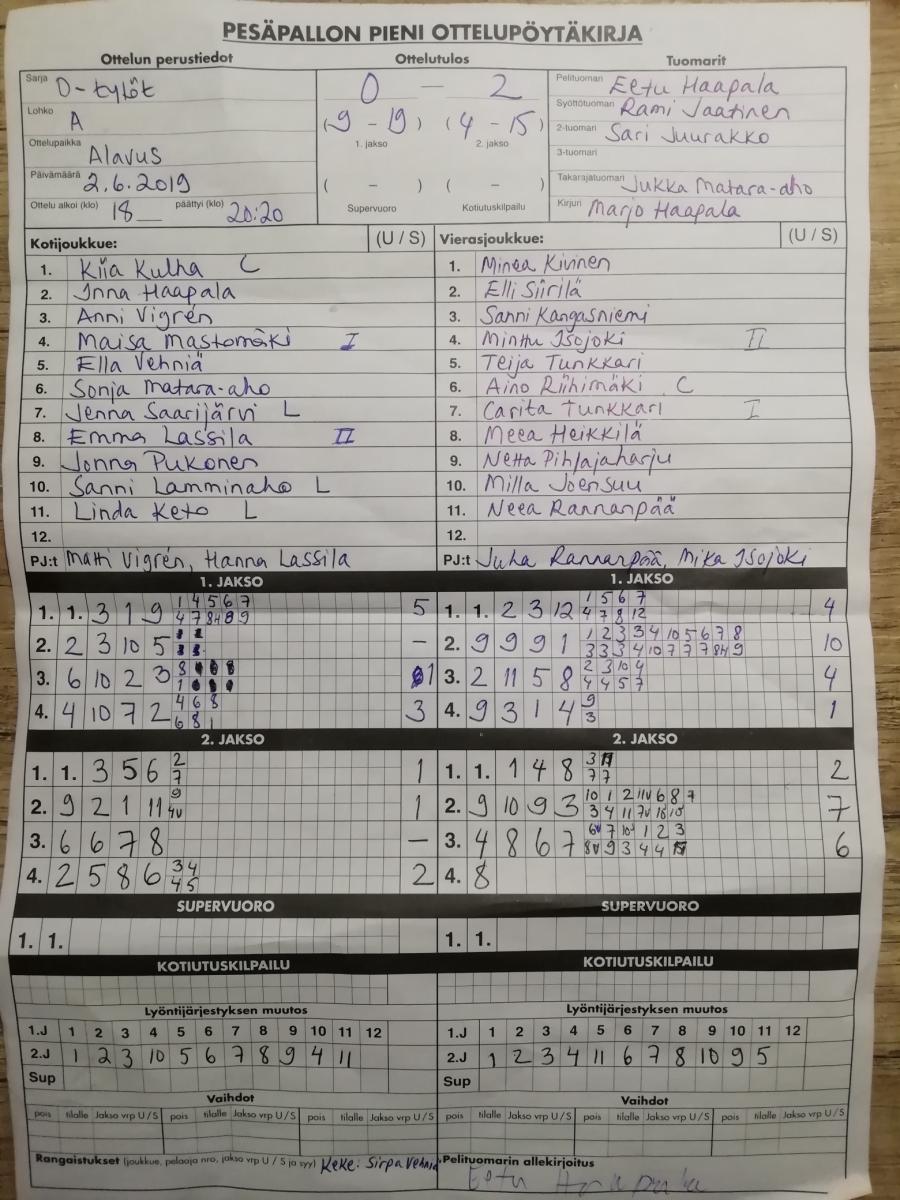 PESÄPALLON PIENI OTTELUPÖYTÄKIRJA
Ottelun perustiedot Ottelutulos Tuomarit
Sarja D-tytöt
Lohko A
Ottelupaikka Alavus
Päivämäärä 2.6.2019
Ottelu alkoi (klo) 18 päättyi (klo) 20:20
0 – 2
(9 - 19) (4 - 15)
1. jakso 2. jakso
( - ) ( - )
Supervuoro Kotiutuskilpailu
Pelituomari Eetu Haapala
Syöttötuomari Rami Jaatinen
2-tuomari Sari Juurakko
3-tuomari
Takarajatuomari Jukka Matara-aho
Kirjuri Marjo Haapala
Kotijoukkue: (U / S)
1. Kiia Kulha C
2. Inna Haapala
3. Anni Vigrén
4. Maisa Mastomäki I
5. Ella Vehniä
6. Sonja Matara-aho
7. Jenna Saarijärvi L
8. Emma Lassila II
9. Jonna Pukonen
10. Sanni Lamminaho L
11. Linda Keto L
12.
PJ:t Matti Vigrén, Hanna Lassila
Vierasjoukkue: (U / S)
1. Minea Kivinen
2. Elli Siirilä
3. Sanni Kangasniemi
4. Minttu Isojoki II
5. Teija Tunkkari
6. Aino Riihimäki C
7. Carita Tunkkari I
8. Meea Heikkilä
9. Netta Pihlajaharju
10. Milla Joensuu
11. Neea Rannanpää
12.
PJ:t Juha Rannanpää, Mika Isojoki
1. JAKSO
1. 1. 3 1 9 1 4 5 6 7 5
4 7 8H 8 9
2. 2 3 10 5 –
3. 6 10 2 3 8 1
1
4. 4 10 7 2 4 6 8 3
6 8 1
1. JAKSO
1. 1. 2 3 12 1 5 6 7 4
4 7 8 12
2. 9 9 9 1 1 2 3 3 4 10 5 6 7 8 10
3 3 3 4 10 7 7 7 8H 9
3. 2 11 5 8 2 3 10 4 4
4 4 5 7
4. 9 3 1 4 9 1
3
2. JAKSO
1. 1. 3 5 6 2 1
7
2. 9 2 1 11 9 1
4v
3. 6 6 7 8 –
4. 2 5 8 6 3 4 2
4 5
2. JAKSO
1. 1. 1 4 8 3 2
7 7
2. 9 10 9 3 10 1 2 11v 6 8 7 7
3 4 11 7v
3. 4 8 6 7 6v 7 1 2 3 6
8v 9 3 4 4
4. 8
SUPERVUORO
1. 1.
SUPERVUORO
1. 1.
KOTIUTUSKILPAILU
KOTIUTUSKILPAILU
Lyöntijärjestyksen muutos
1.J 1 2 3 4 5 6 7 8 9 10 11 12
2.J 1 2 3 10 5 6 7 8 9 4 11
Sup
Lyöntijärjestyksen muutos
1.J 1 2 3 4 5 6 7 8 9 10 11 12
2.J 1 2 3 4 11 6 7 8 10 9 5
Sup
Vaihdot
pois tilalle Jakso vrp U / S pois tilalle Jakso vrp U / S pois tilalle Jakso vrp U / S
Vaihdot
pois tilalle Jakso vrp U / S pois tilalle Jakso vrp U / S pois tilalle Jakso vrp U / S
Rangaistukset (joukkue, pelaaja nro, jakso vrp U / S ja syy) Keke: Sirpa Vehniä
Pelituomarin allekirjoitus
Eetu Haapala